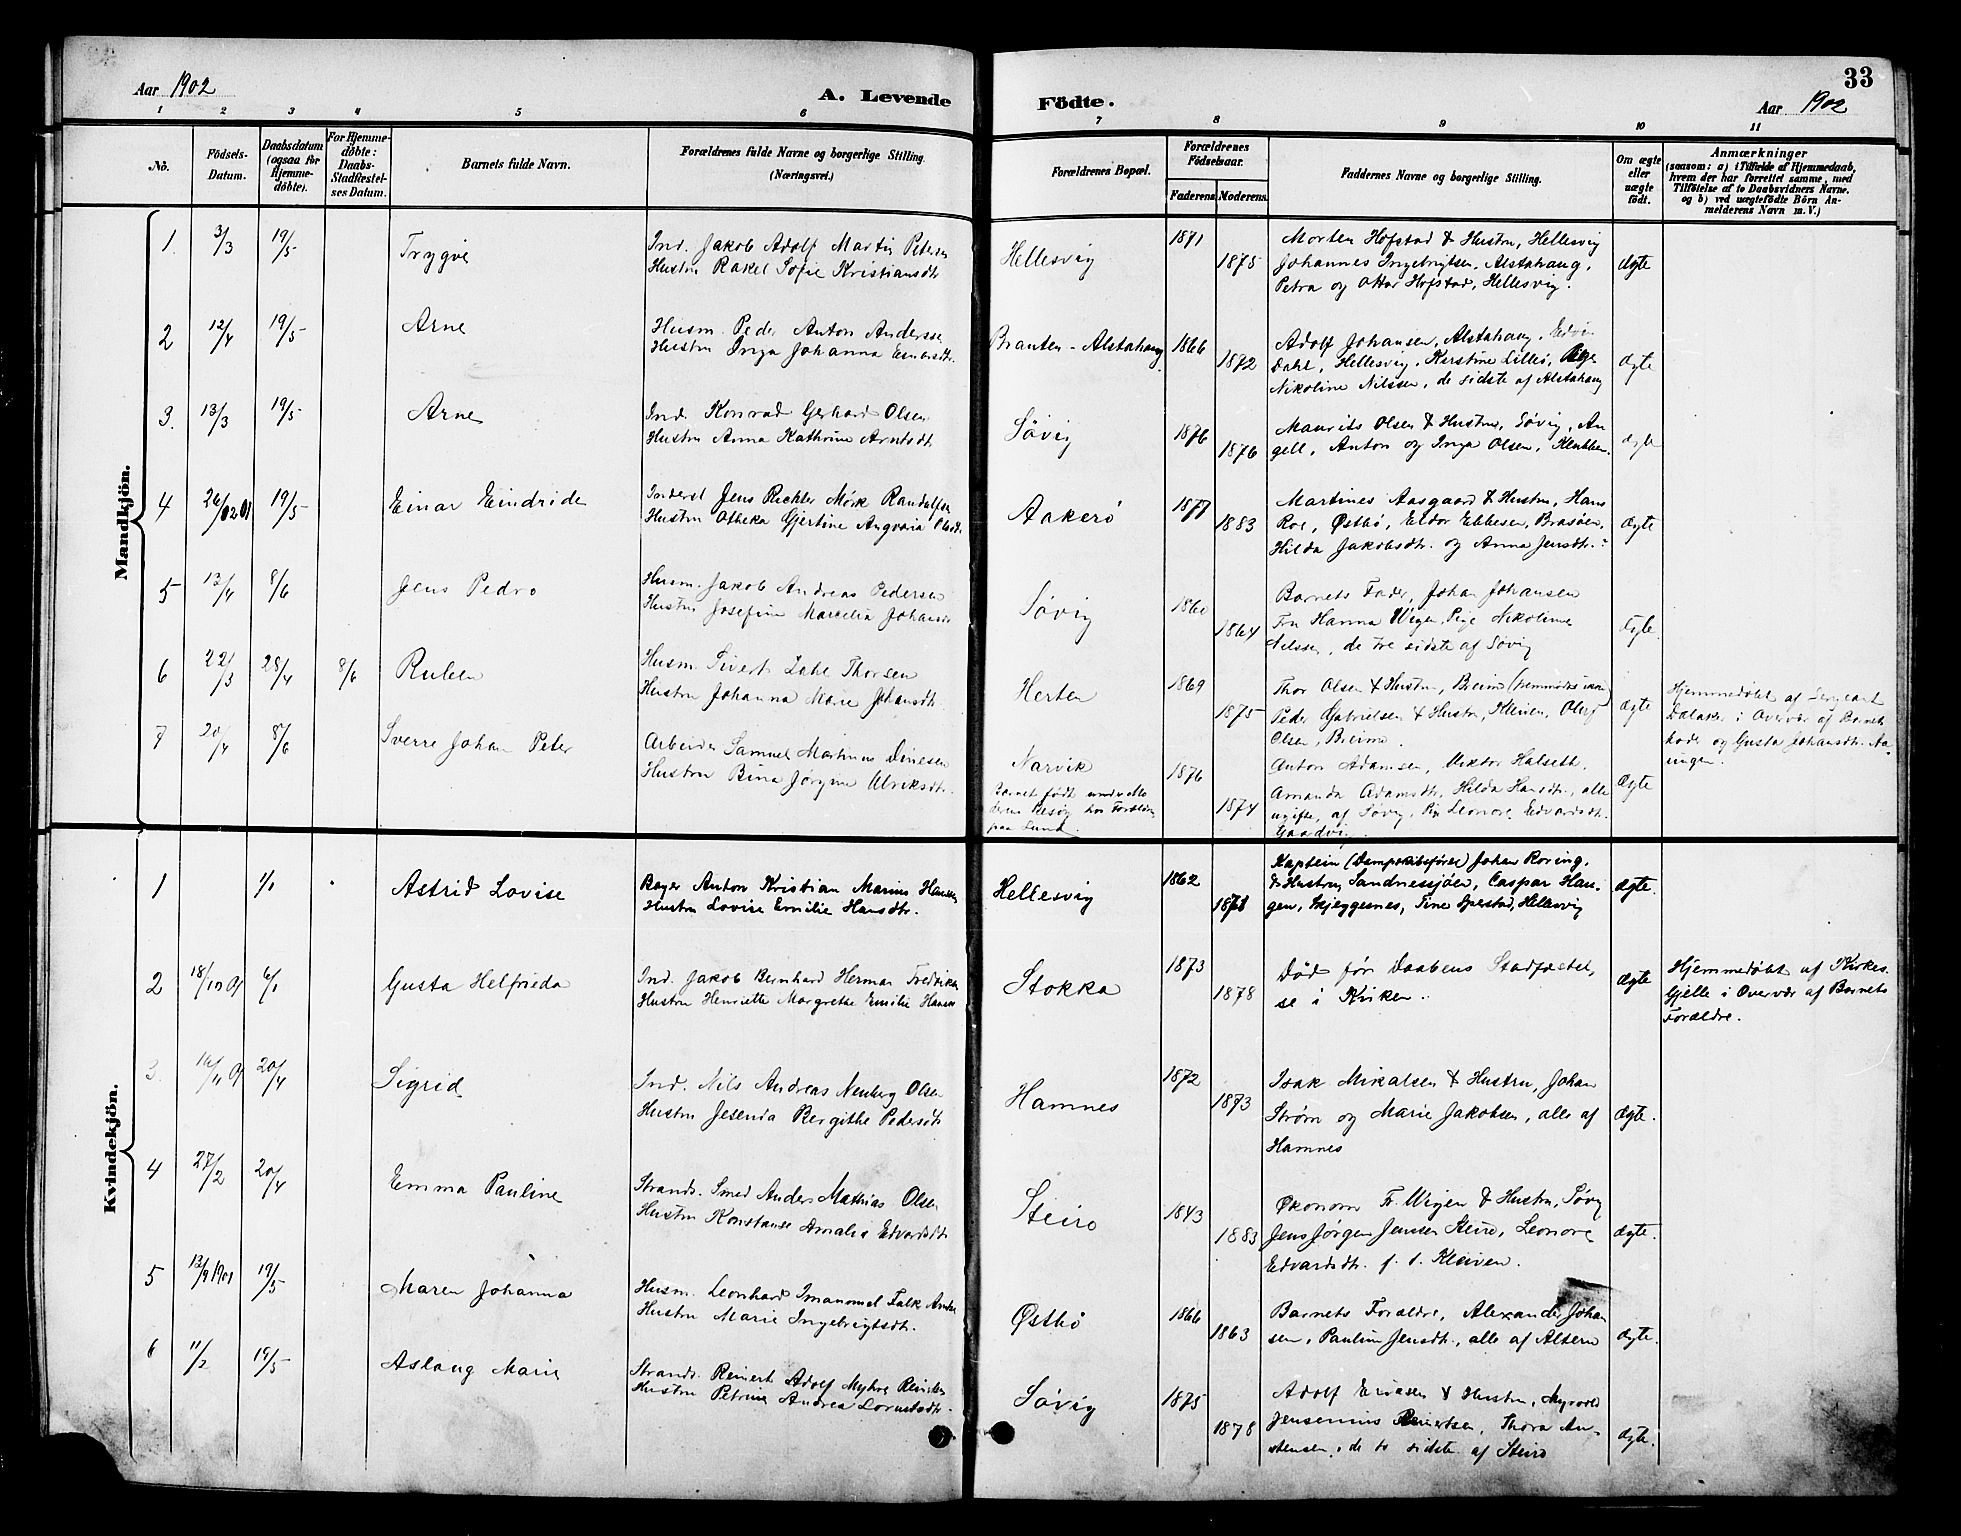 33
Aar 1902
A. Levende
Födte.
Aar 1902
1 2 3 4 5 6 7 8 9 10 11
No.
Födsels-
Datum.
Daabsdatum
(ogsaa for
Hjemme-
döbte).
For Hjemme-
döbte:
Daabs-
Stadfæstel-
ses Datum.
Barnets fulde Navn.
Forældrenes fulde Navne og borgerlige Stilling
(Næringsvei.)
Forældrenes Bopæl.
Forældrenes
Födselsaar.
Faderens. Moderens.
Faddernes Navne og borgerlige Stilling.
Om ægte
eller
uægte
födt.
Anmærkninger
(saasom: a) i Tilfælde af Hjemmedaab,
hvem der har forrettet samme, med
Tilföielse af to Daabsvidners Navne.
og b) ved uægtefödte Börn An-
melderens Navn m. V.)
Mandkjön.
1. 3/3 19/5 Trygve
Ind. Jakob Adolf Martin Petersen
Hustru Rakel Sofie Kristiansdt.
Hellesvig 1871 1875
Morten Hofstad & Hustru, Hellesvig
Johannes Ingebrigtsen, Alstahaug,
Petra og Ottar Hofstad, Hellesvig.
ægte
2 12/4 19/5 Arne
Husm. Peder Anton Anderssen
Hustru Inga Johanna
Branten - Alstahaug 1866 1872
Adolf Johansen, Alstahaug,
Dahl, Hellesvig, Kirstine Lillø, Pige
Nikoline Nilssen, de sidste af Alstahaug
ægte
3. 13/3 19/5 Arne
Ind. Konrad Gerhard Olsen
Hustru Anna Kathrine Arntsdt.
Søvig 1876 1876
Maurits Olsen & Hustru, Søvig, An
gell, Anton og Inga Olsen, Klubben.
ægte
4 26/12 01 19/5 Einar Eindride
Inderst Jens Richter Mørk Randulfsen
Hustru Otheka Gjertine Angvaria
Aakerø 1877 1883
Martines Aasgaard & Hustru, Hans
Roe, Østbø, Eldor Ebbesen, Brasøen,
Hilda Jakobsdtr. og Anna Jensdtr.
ægte
5 13/4 8/6 Jens Pedro
Husm. Jakob Andreas Pedersen
Hustru Josefine Marcelia Johansdt
Søvig 1860 1864
Barnets Fader, Johan Johansen
Fru Hanna Wigen, Pige Nikoline
Nilssen, de tre sidste af Søvig
ægte.
6 22/3 28/4 8/6 Ruben
Husm. Sivert Zahl Thorsen
Hustru Johanna Marie Johansdt.
Herten 1869 1875
Thor Olsen & Hustru, Breimo
Peder Gabrielsen & Hustru, Kleiven, Oluf
Olsen, Breimo.
ægte
Hjemmedøbt af Sergeant
Dalaker i Overvær af Barnets
Fader og Gusta Johansdtr.
7 20/4 8/6 Sverre Johan Peter
Arbeider Samuel Martinus Dinesen
Hustru Bina Jørgine Ulriksdtr.
Narvik
Barnet født under Mo
derens Besøg hos Forældre
paa Lund.
1876 1874
Anton Adamsen, Viktor Halseth,
Amanda Adamsdt, Hilda Hansdtr, alle
ugifte, af Søvig, Pige Leonore Edvardsdt.
ægte
Kvindekjön.
1 1/1 Astrid Lovise
Bager Anton Kristian Marius Hansen
Hustru Lovise Emilie Hansdtr.
Hellesvig 1862
Kaptein (Dampskibsfører) Johan Roring,
& Hustru, Sandnessjøen, Caspar Han-
sen, Skjeggesnes, Tine Hellesvig
ægte.
2 18/10 01 6/1 Gusta Helfrieda
Ind. Jakob Bernhard Herman Fredriksen
Hustru Henriette Margrethe Emilie Hansen
Stokka 1873 1878
Død før Daabens Stadfæstel,
se i Kirken.
ægte
Hjemmedøbt af Kirkes.
Gjelle i Overvær af Barnets
Forældre.
3. 16/11 01 20/4 Sigrid
Ind. Nils Andreas Neuberg Olsen
Hustru Jesenda Bergithe Pedersdt
Hamnes 1872 1873
Isak Mikalsen & Hustru, Johan
Strøm og Marie Jakobsen, alle af
Hamnes
ægte.
4 27/2 20/4 Emma Pauline
Strands. Smed Anders Mathias Olsen
Hustru Konstanse Amalia Edvardsdt
Steiro 1843 1883
Økonom Fr. Wigen & Hustru, Søvig
Jens Jørgen Jensen Steiro, Leonore
Edvardsdt. f. t. Kleiven.
ægte.
5 13/9 1901 19/5 Maren Johanna
Husm. Leonhard Imanouel Falk
Hustru Marie Ingebrigtsdt.
Østbø 1866 1863
Barnets Forældre, Alexander Johan
sen, Pauline Jensdt., alle af Altern
ægte.
6 11/2 19/5 Aslaug Marie
Strands. Reinert Adolf Myhre
Hustru Petrine Andrea
Søvig 1875 1878
Adolf Eriksen & Hustru, Myrvold
Jensenius Reinertsen, Thora An-
stensen, de to sidste af Steiro
ægte.